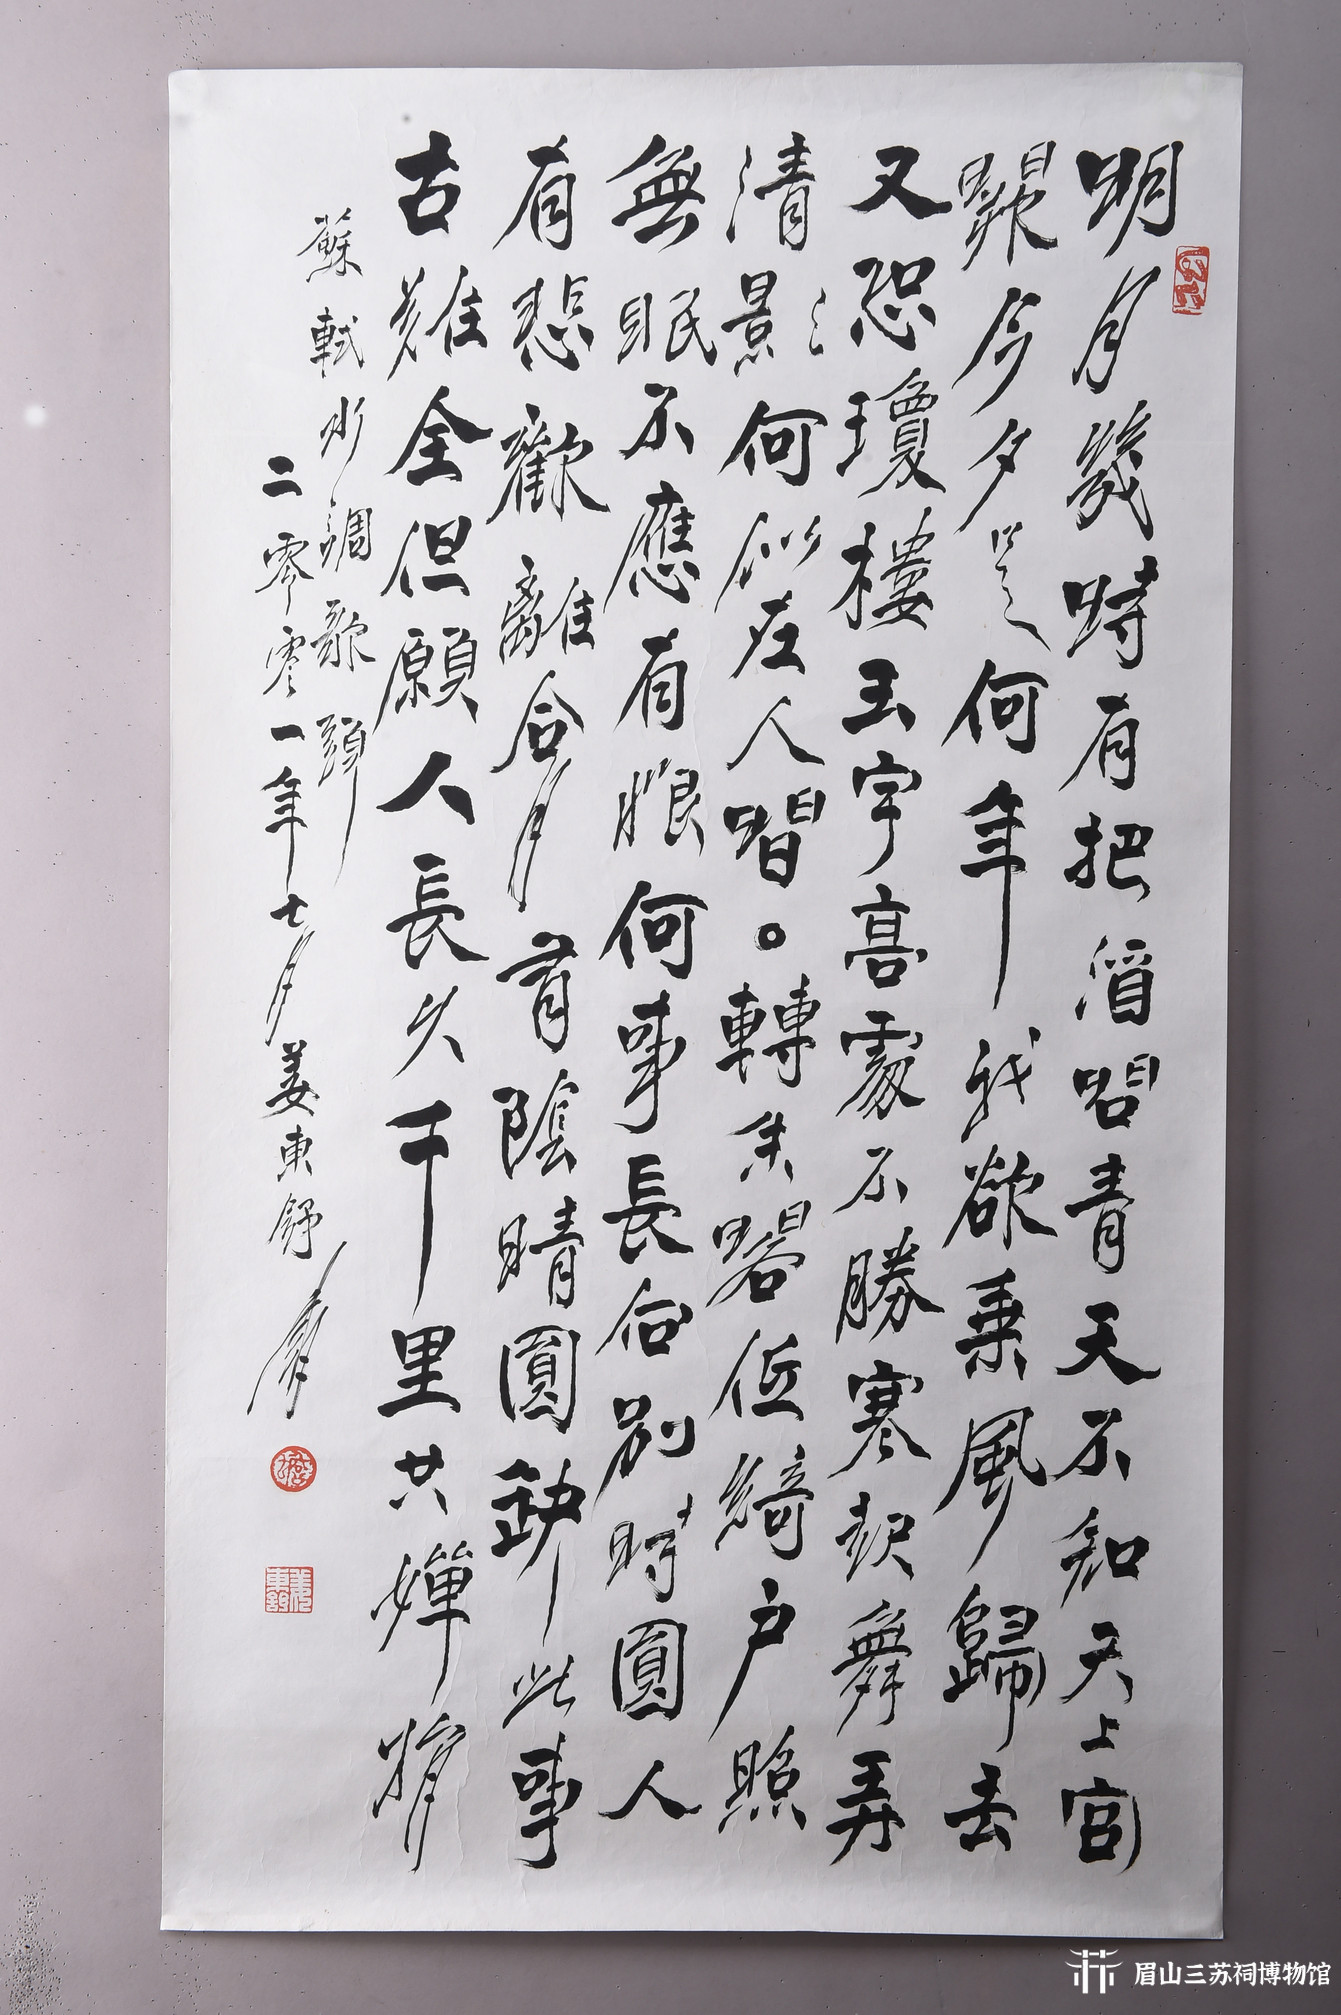 明月幾時有把酒問青天不知天上宮
闕今夕是何年我欲乘風歸去
又恐瓊樓玉宇高處不勝寒起舞弄
清影何似在人間。轉朱閣低綺戶照
無眠不應有恨何事長向別時圓人
有悲歡離合月有陰晴圓缺此事
古難全但願人長久千里共嬋娟
蘇軾水調歌頭
二零零一年七月姜東舒
眉山三苏祠博物馆